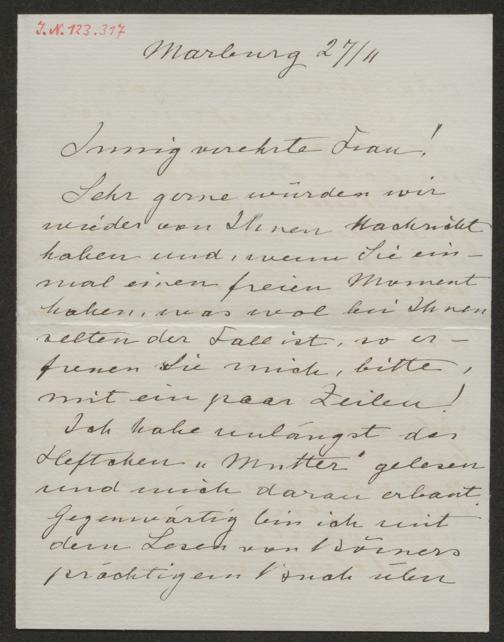 J.N. 123.317
Marburg 27/11
Innig verehrte Frau!
Sehr gerne würden wir
wieder von Ihnen Nachricht
haben und, wenn Sie ein-
mal einen freien Moment
haben, was wol bei Ihnen
selten der Fall ist, so er-
freuen Sie mich, bitte,
mit ein paar Zeilen!
Ich habe unlängst das
Heftchen „Mutter" gelesen
und mich daran erbaut.
Gegenwärtig bin ich mit
dem Lesen von Börners
prächtigem Buch über